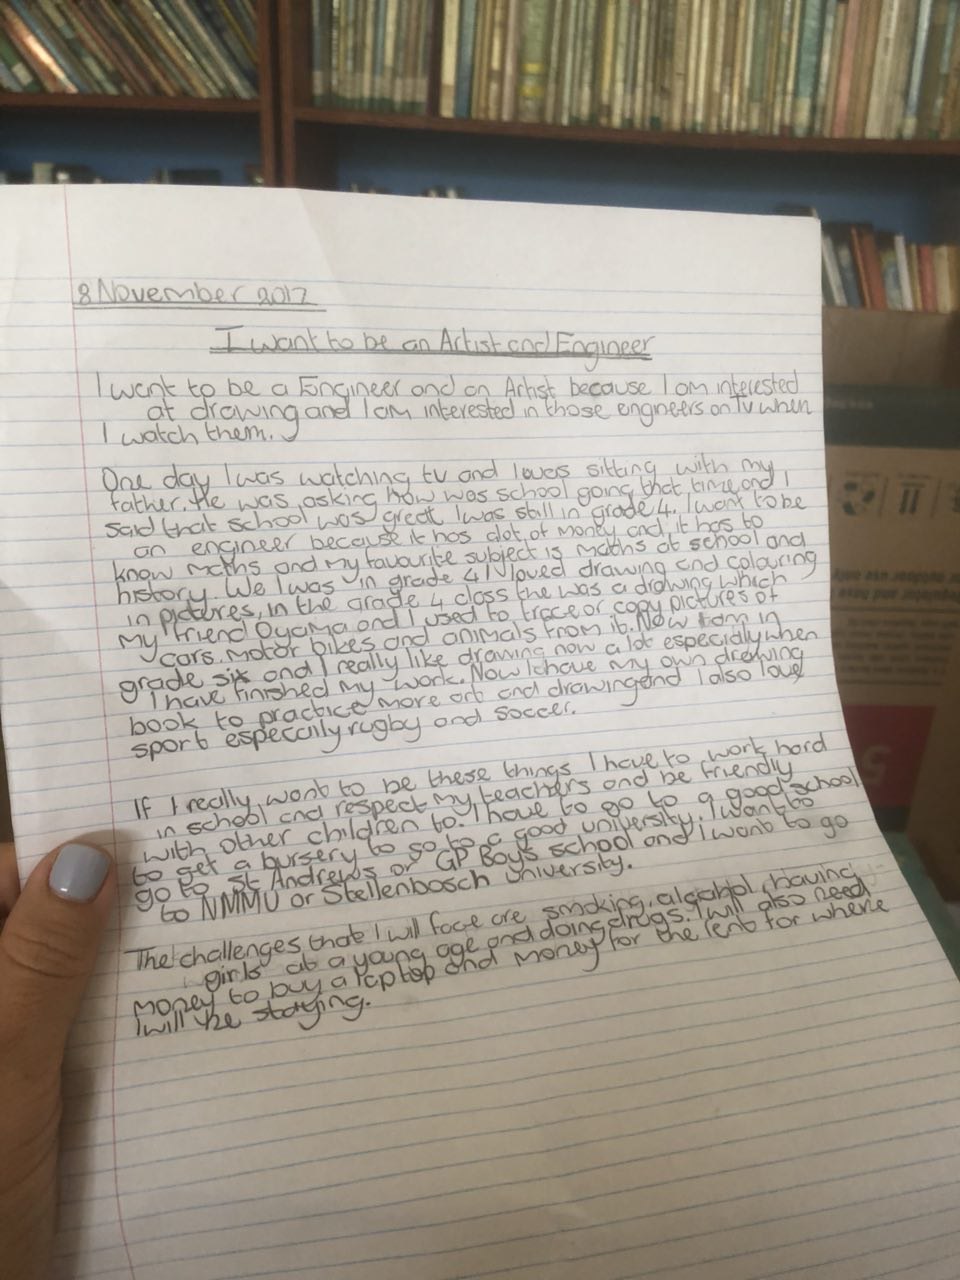 8 November 2017
I want to be an Artist and Engineer
I want to be a Engineer and an Artist because I am interested
at drawing and I am interested in those engineers on Tv when
I watch them.
One day I was watching tv and I was sitting with my
father. He was asking how was school going that time and I
said that school was great I was still in grade 4. I want to be
an engineer because it has alot of money and it has to
know maths and my favourite subject is maths at school and
history. We I was in grade 4 I loved drawing and colouring
in pictures, in the grade 4 class the was a drawing which
my friend Oyama and I used to trace or copy pictures of
cars. motor bikes and animals from it. Now I am in
grade six and I really like drawing now a lot especially when
I have finished my work. Now I have my own drawing
book to practice more art and drawing and I also love
sport especcily rugby and soccer.
If I really want to be these things I have to work hard
in school and respect my teachers and be friendly
with other children to. I have to go to a good school
to get a bursery to go to a good university. I want to
go to St Andrews or GP Boys school and I want to go
to NMMU or Stellenbosch University.
The challenges that I will face are smoking, alcohol, having
girls at a young age and doing drugs. I will also need
money to buy a laptop and money for the rent for where
I will be staying.
5